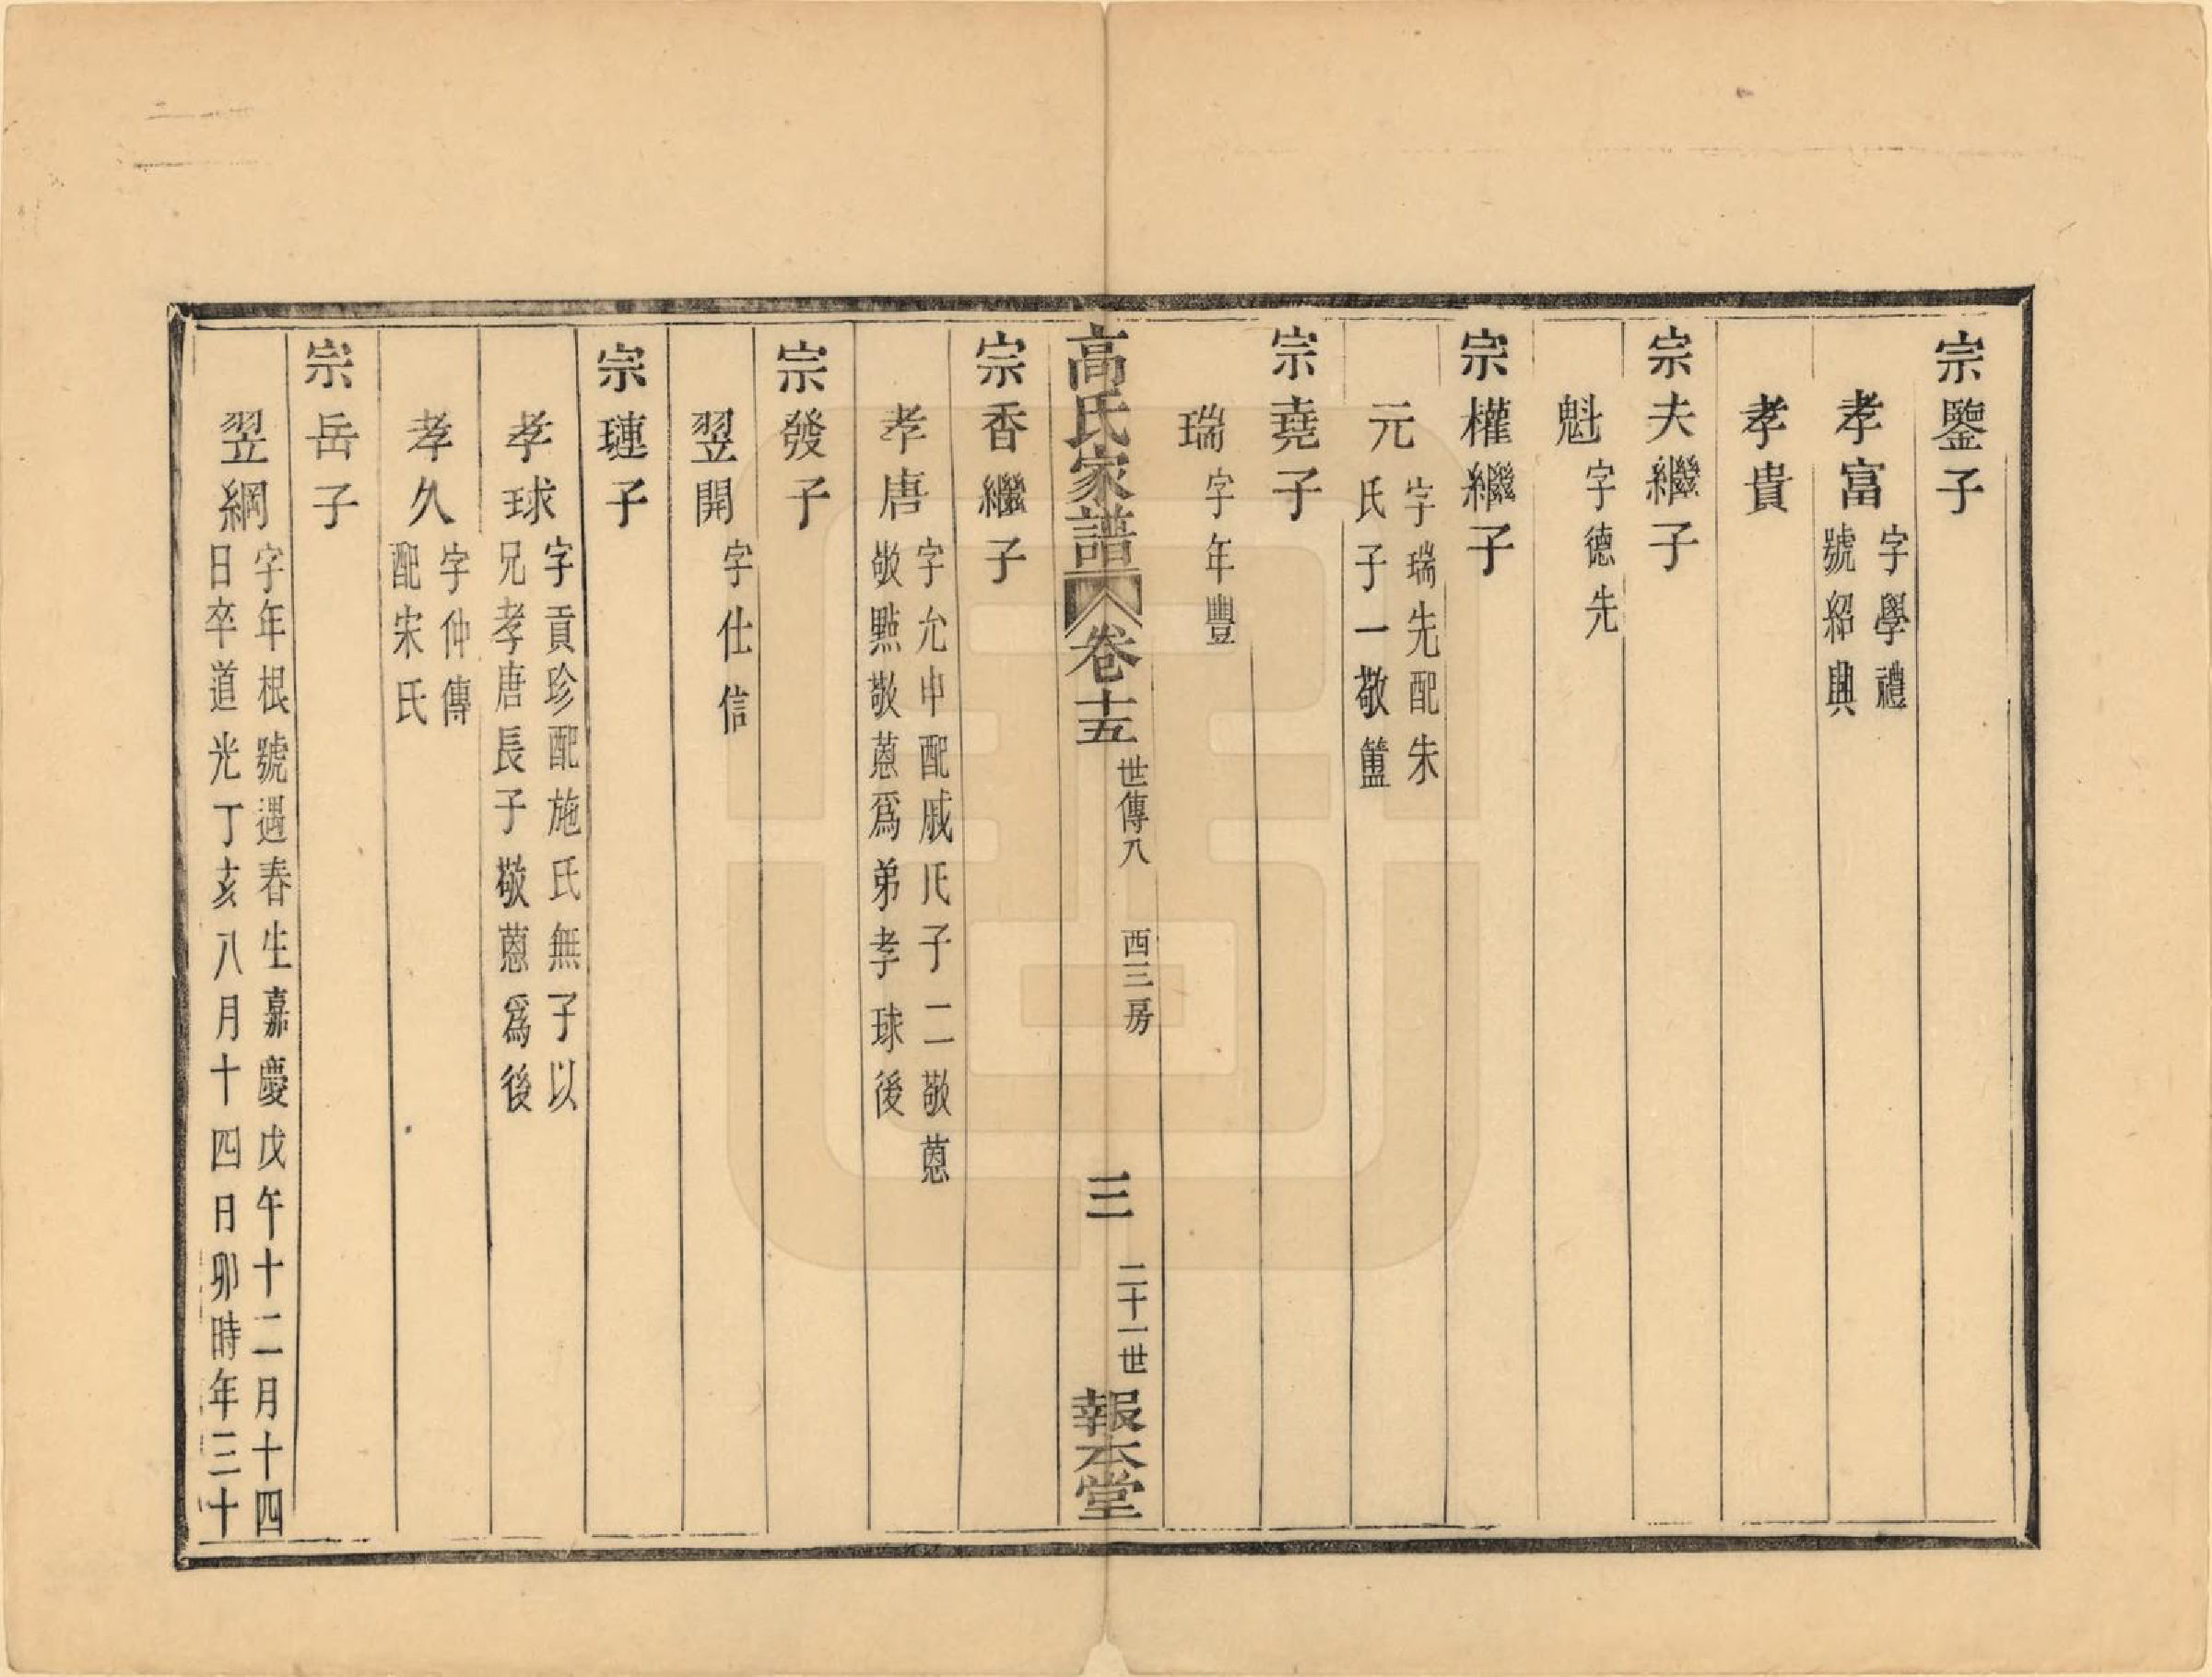 宗鑒子
孝富 字學禮
號紹興
孝貴
宗夫繼子
魁 字德先
宗權繼子
元 字瑞先配朱
氏子一敬簠
宗堯子
瑞 字年豐
高氏家譜 卷十五 世傳八 西三房 三 二十一世 報本堂
宗香繼子
孝唐 字允申配戚氏子二敬蒽
敬點敬蒽爲弟孝球後
宗發子
翌開 字仕信
宗璉子
孝球 字貢珍配施氏無子以
兄孝唐長子敬蒽爲後
孝久 字仲傳
配宋氏
宗岳子
翌綱 字年根號遇春生嘉慶戊午十二月十四
日卒道光丁亥八月十四日卯時年三十